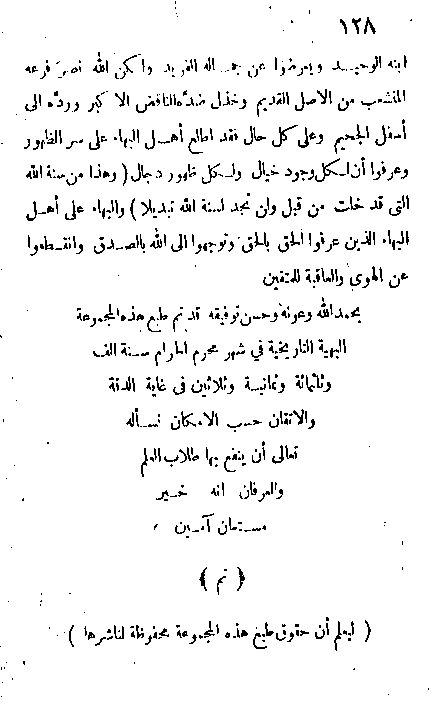 ١٢٨
ابنه الوحيد ويعرضوا عن جماله الفريد ولكن الله نصر فرعه
المنشعب من الاصل القديم وخذل ضده الناقض الاكبر ورده الى
أسفل الجحيم وعلى كل حال فقد اطلع أهل البهاء على سر الظهور
وعرفوا أن لكل وجود خيال ولكل ظهور دجال ( وهذا من سنة الله
التى قد خلت من قبل ولن تجد لسنة الله تبديلا ) والبهاء على أهل
البهاء الذين عرفوا الحق بالحق وتوجهوا الى الله بالصدق وانقطعوا
عن الهوى والعاقبة للمتقين
بحمد الله وعونه وحسن توفيقه قد تم طبع هذه المجموعة
البهية التاريخية في شهر محرم الحرام سنة الف
وثلثمائة وثمانية وثلاثين فى غاية الدقة
والاتقان حسب الامكان نسأله
تعالى أن ينفع بها طلاب العلم
والعرفان انه خير
مستعان آمين
﴿ تم ﴾
( ليعلم أن حقوق طبع هذه المجموعة محفوظة لناشرها )